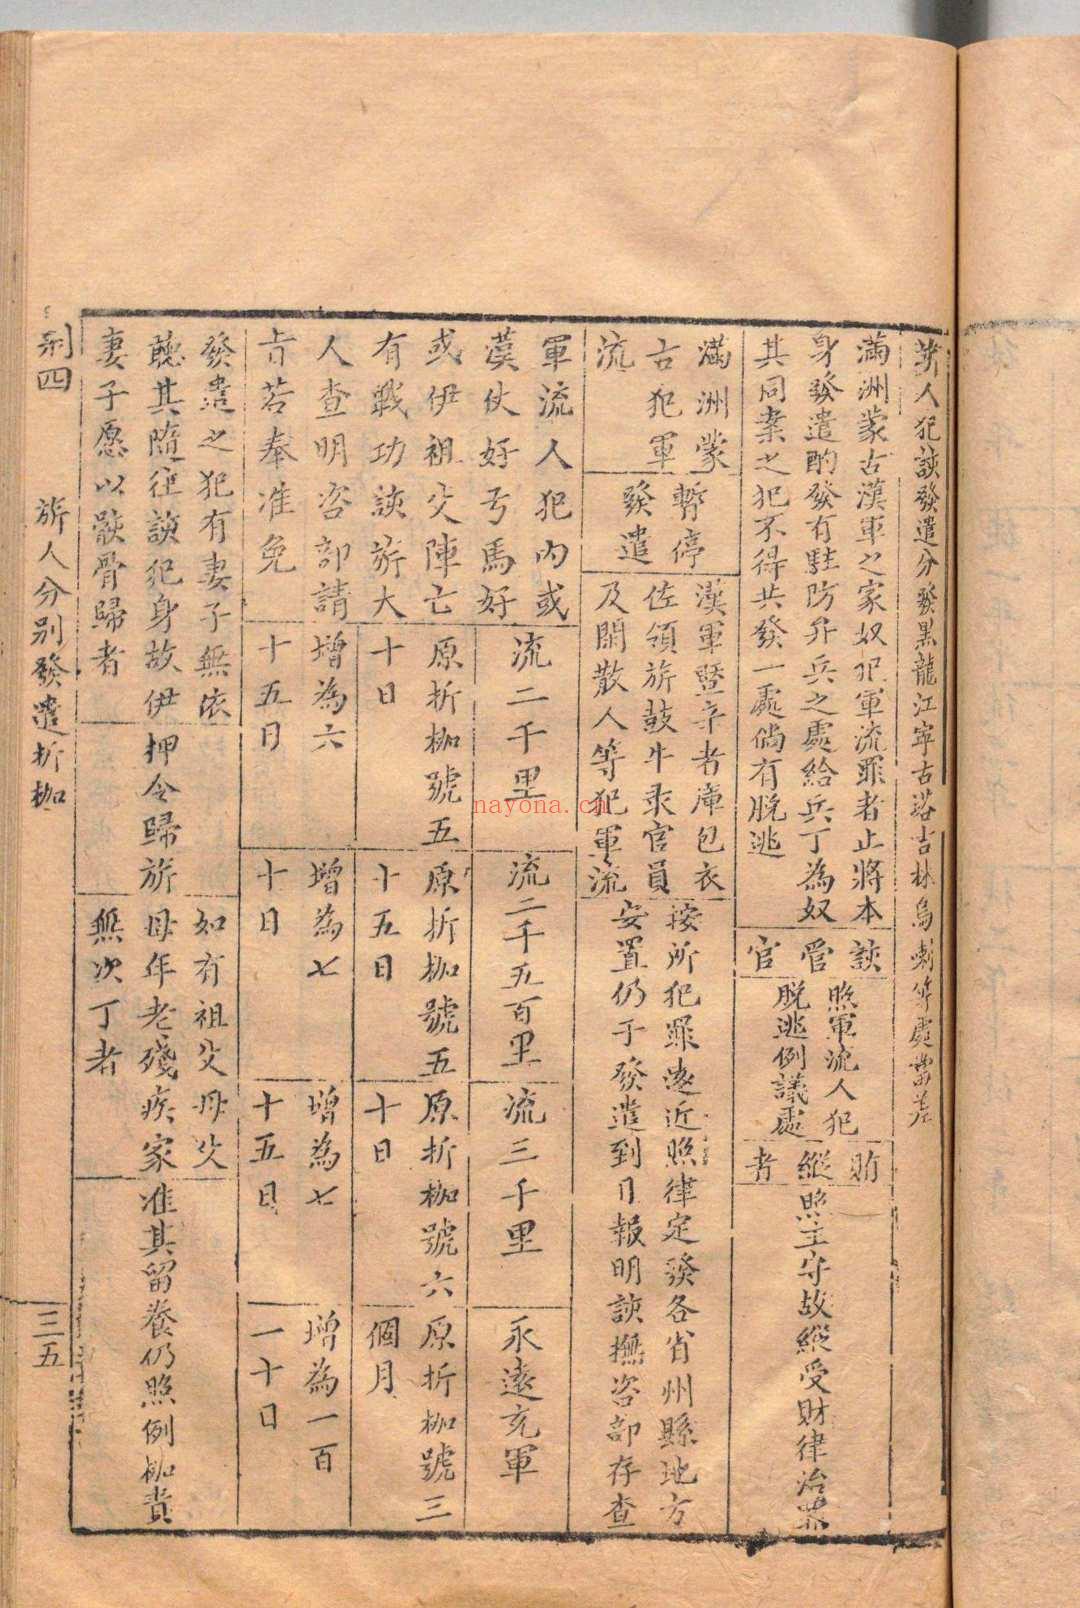 旂人犯該發遣分發黑龍江寧古塔吉林烏喇等處當差
滿洲蒙古漢軍之家奴犯軍流罪者止將本
身發遣酌發有駐防弁兵之處給兵丁為奴
其同案之犯不得共發一處倘有脫逃
該管官
照軍流人犯
脫逃例議處
賄縱者
照主守故縱受財律治罪
滿洲蒙
古犯軍
流
暫停
發遣
漢軍暨辛者庫包衣
佐領旂鼓牛彔官員
及閑散人等犯軍流
按所犯罪遠近照律定發各省州縣地方
安置仍于發遣到日報明該撫咨部存查
軍流人犯內或
漢仗好弓馬好
或伊祖父陣亡
有戰功該旂大
人查明咨部請
旨若奉准免
流二千里
原折枷號五
十日
增為六
十五日
流二千五百里
原折枷號五
十五日
增為七
十日
流三千里
原折枷號六
十日
增為七
十五日
永遠充軍
原折枷號三
個月
增為一百
一十日
發遣之犯有妻子無依
聽其隨往該犯身故伊
妻子愿以骸骨歸者
押令歸旂
如有祖父母父
母年老殘疾家
無次丁者
准其留養仍照例枷責
刑四
旂人分別發遣折枷
三五
nayona.cn